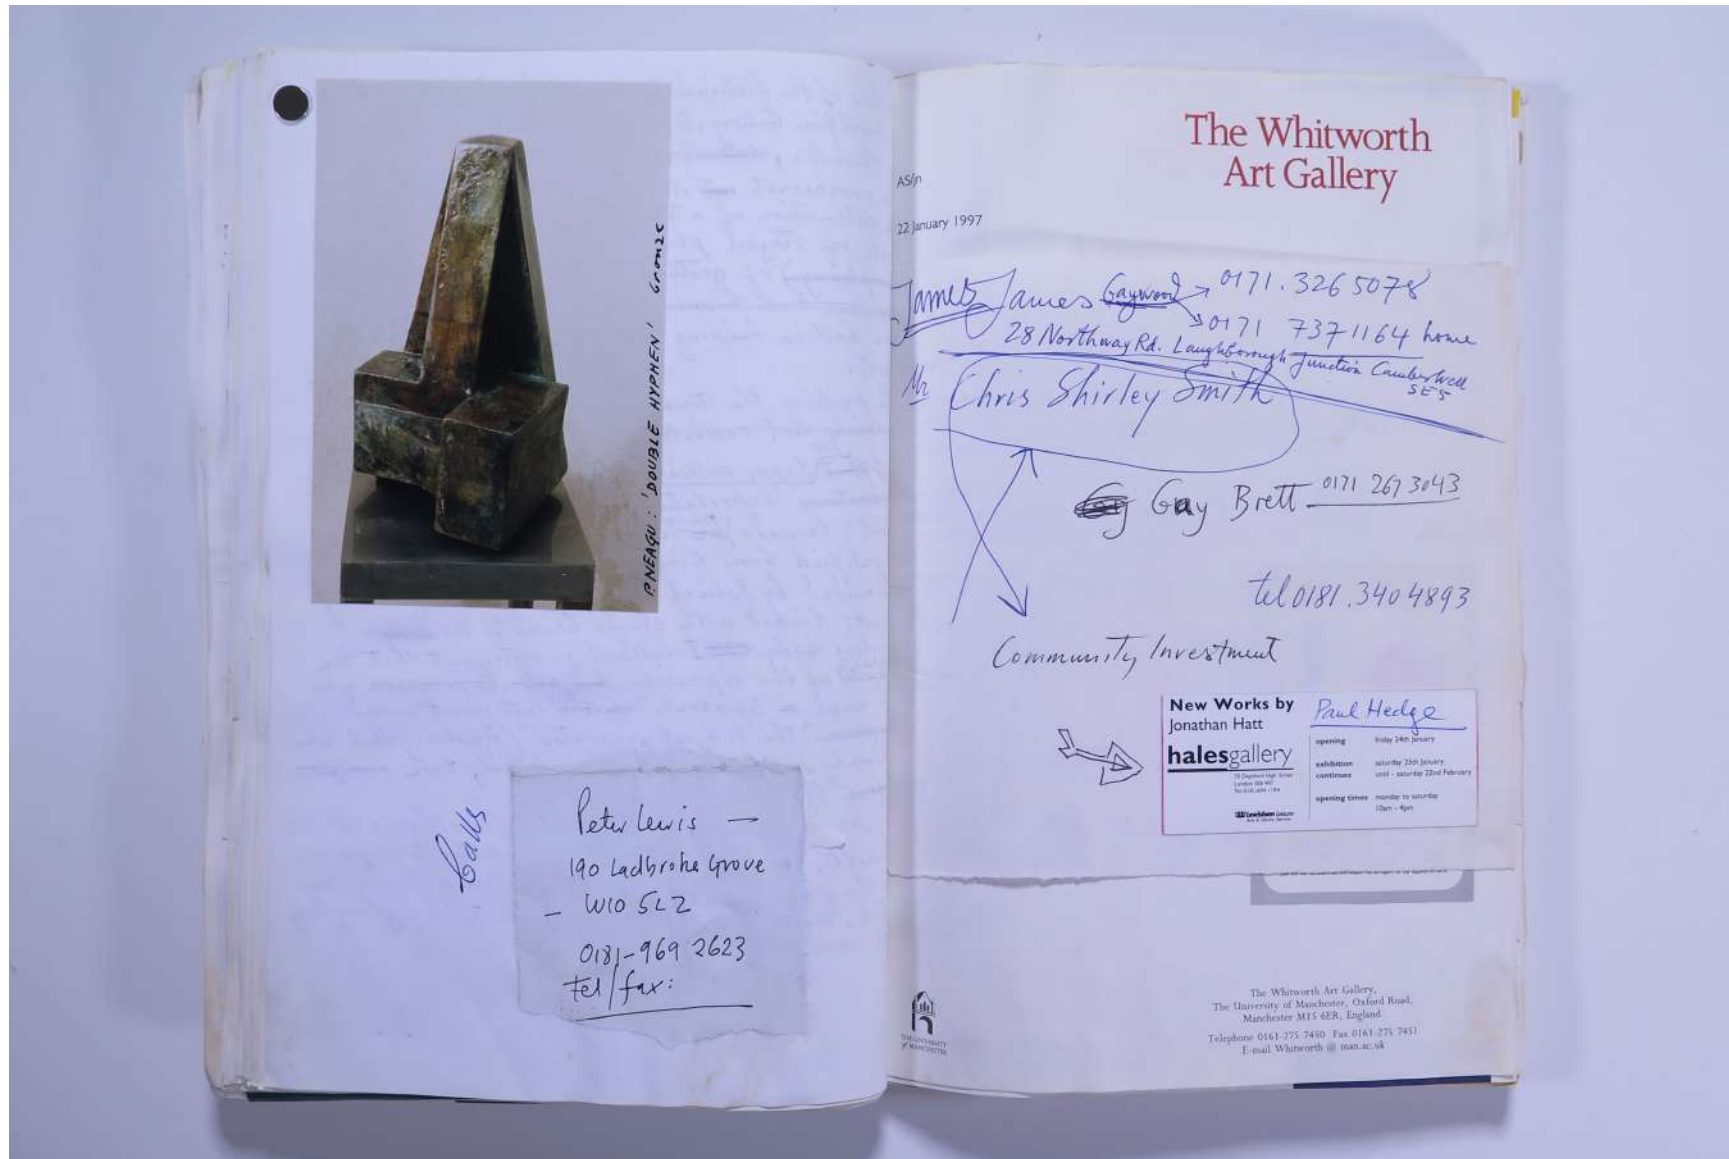 P. NEAGU: 'DOUBLE HYPHEN' bronze
Calls
Peter Lewis —
190 Ladbroke Grove
— W10 5LZ
0181-969 2623
tel/fax:
The Whitworth
Art Gallery
AS/jn
22 January 1997
James James Gaywood 0171.3265078
0171 7371164 home
28 Northway Rd. Laughborough Junction Camberwell
SE5
Mr Chris Shirley Smith
Guy Brett 0171 267 3043
tel 0181.340 4893
Community Investment
New Works by
Jonathan Hatt
Paul Hedge
halesgallery
70 Deptford High Street
opening friday 24th January
exhibition saturday 25th January
continues until - saturday 22nd February
opening times monday to saturday
10am - 4pm
Lewisham Leisure
The Whitworth Art Gallery,
The University of Manchester, Oxford Road,
Manchester M15 6ER, England
Telephone 0161-275 7450 Fax 0161-275 7451
E-mail Whitworth @ man.ac.uk
THE UNIVERSITY
of MANCHESTER